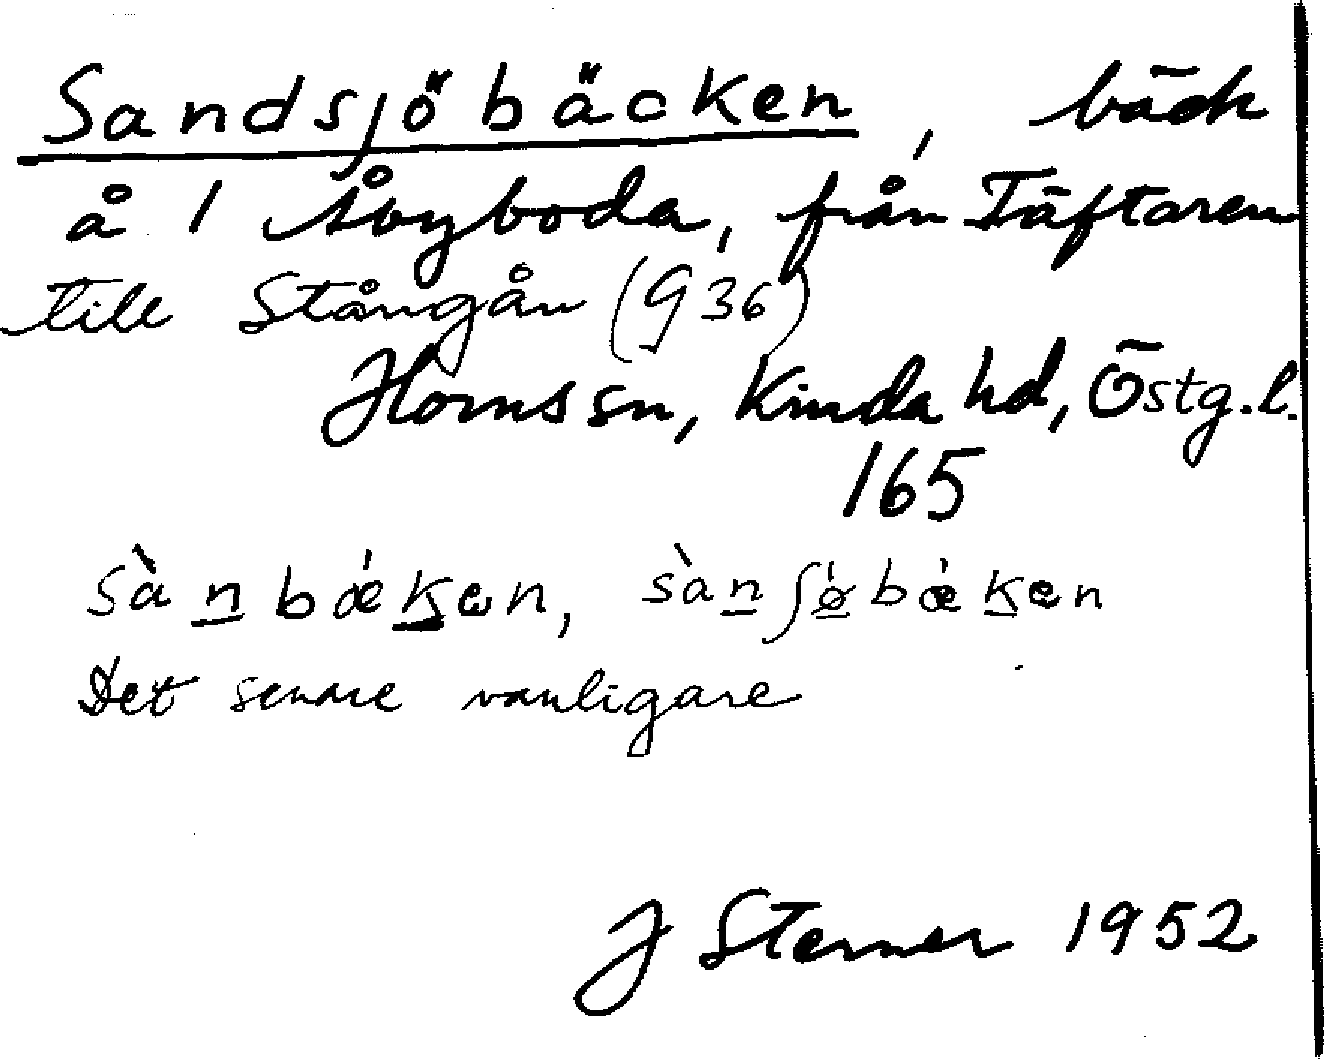 Sandsjöbäcken, bäck
å 1 Åbyboda, från Täftaren
till Stångån (G 36)
Horns sn, Kinda hd, Östg.l.
165
sàn̲bǽk̲en, sàn̲ʃǿ̲bæ̀k̲en
Det senare vanligare
J Sterner 1952